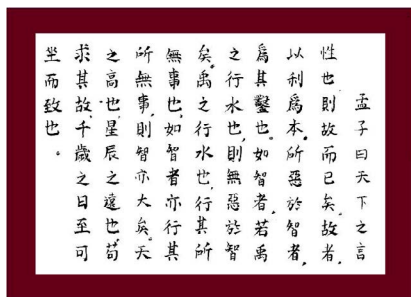 孟子曰天下之言
性也則故而已矣。故者、
以利爲本。所惡於智者、
爲其鑿也。如智者、若禹
之行水也、則無惡於智
矣。禹之行水也、行其所
無事也、如智者亦行其
所無事、則智亦大矣。天
之高也、星辰之遠也、苟
求其故、千歲之日至可
坐而致也。